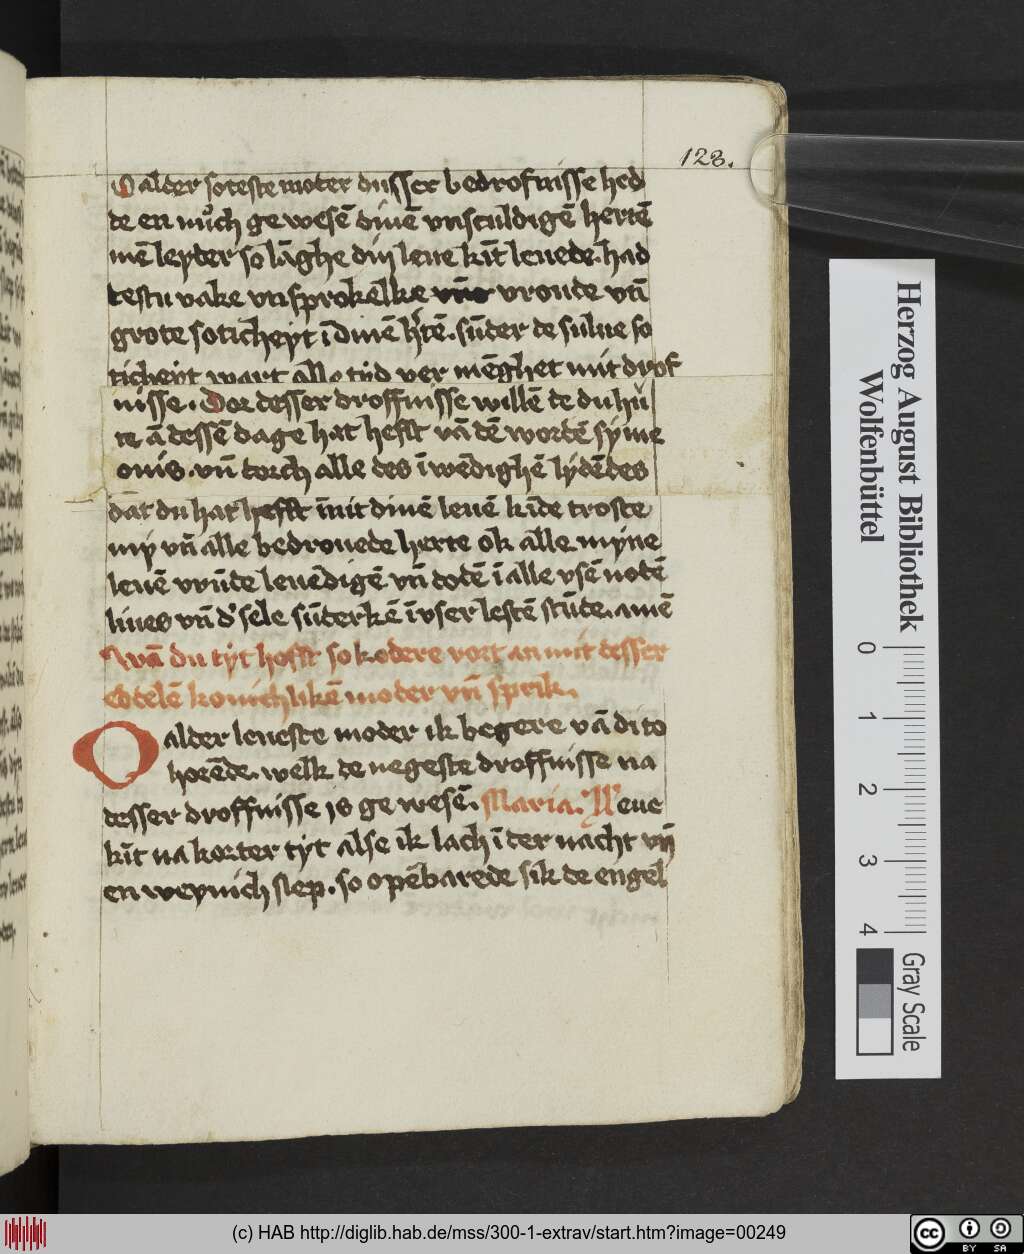 123.
O alder soteste moter dusser bedrofnisse hed
de en nuch gewesē dinē vnsculdigē hertē
mē leyder so lāghe din leue kīt leuede. had
testu vake vnsprokēlke vroude vn̄
grote soticheyt ī dinē h'tē. sūder de sulue so
ticheyt wart alle tijd ver mēghet mit drof
nisse. Dor desser droffnisse willē de du hu
te ā dessē dage hat hefft vā dē wordē syme
onis. vn̄ dorch alle des īwēdighē lydēdes
dat du hat hefft mit dinē leuē kīde troste
my vn̄ alle bedrouede herte ok alle myne
leuē vrūde leuēdigē vn̄ dodē ī alle vsē notē
liues vn̄ d' sele sūderkē ī vser lestē stūde. amē
Wā du tyt hefft so kodere vort an mit desser
eddelē konichlikē moder vn̄ sprik.
O alder leueste moder ik begere vā di to
horēde. welk de negeste droffnisse na
desser droffnisse is gewesē. Maria. Leue
kīt na korter tyt alse ik lach ī der nacht vn̄
en weynich slep. so opēbarede sik de engel
Herzog August Bibliothek
Wolfenbüttel
0 1 2 3 4
Gray Scale
(c) HAB http://diglib.hab.de/mss/300-1-extrav/start.htm?image=00249
cc BY SA